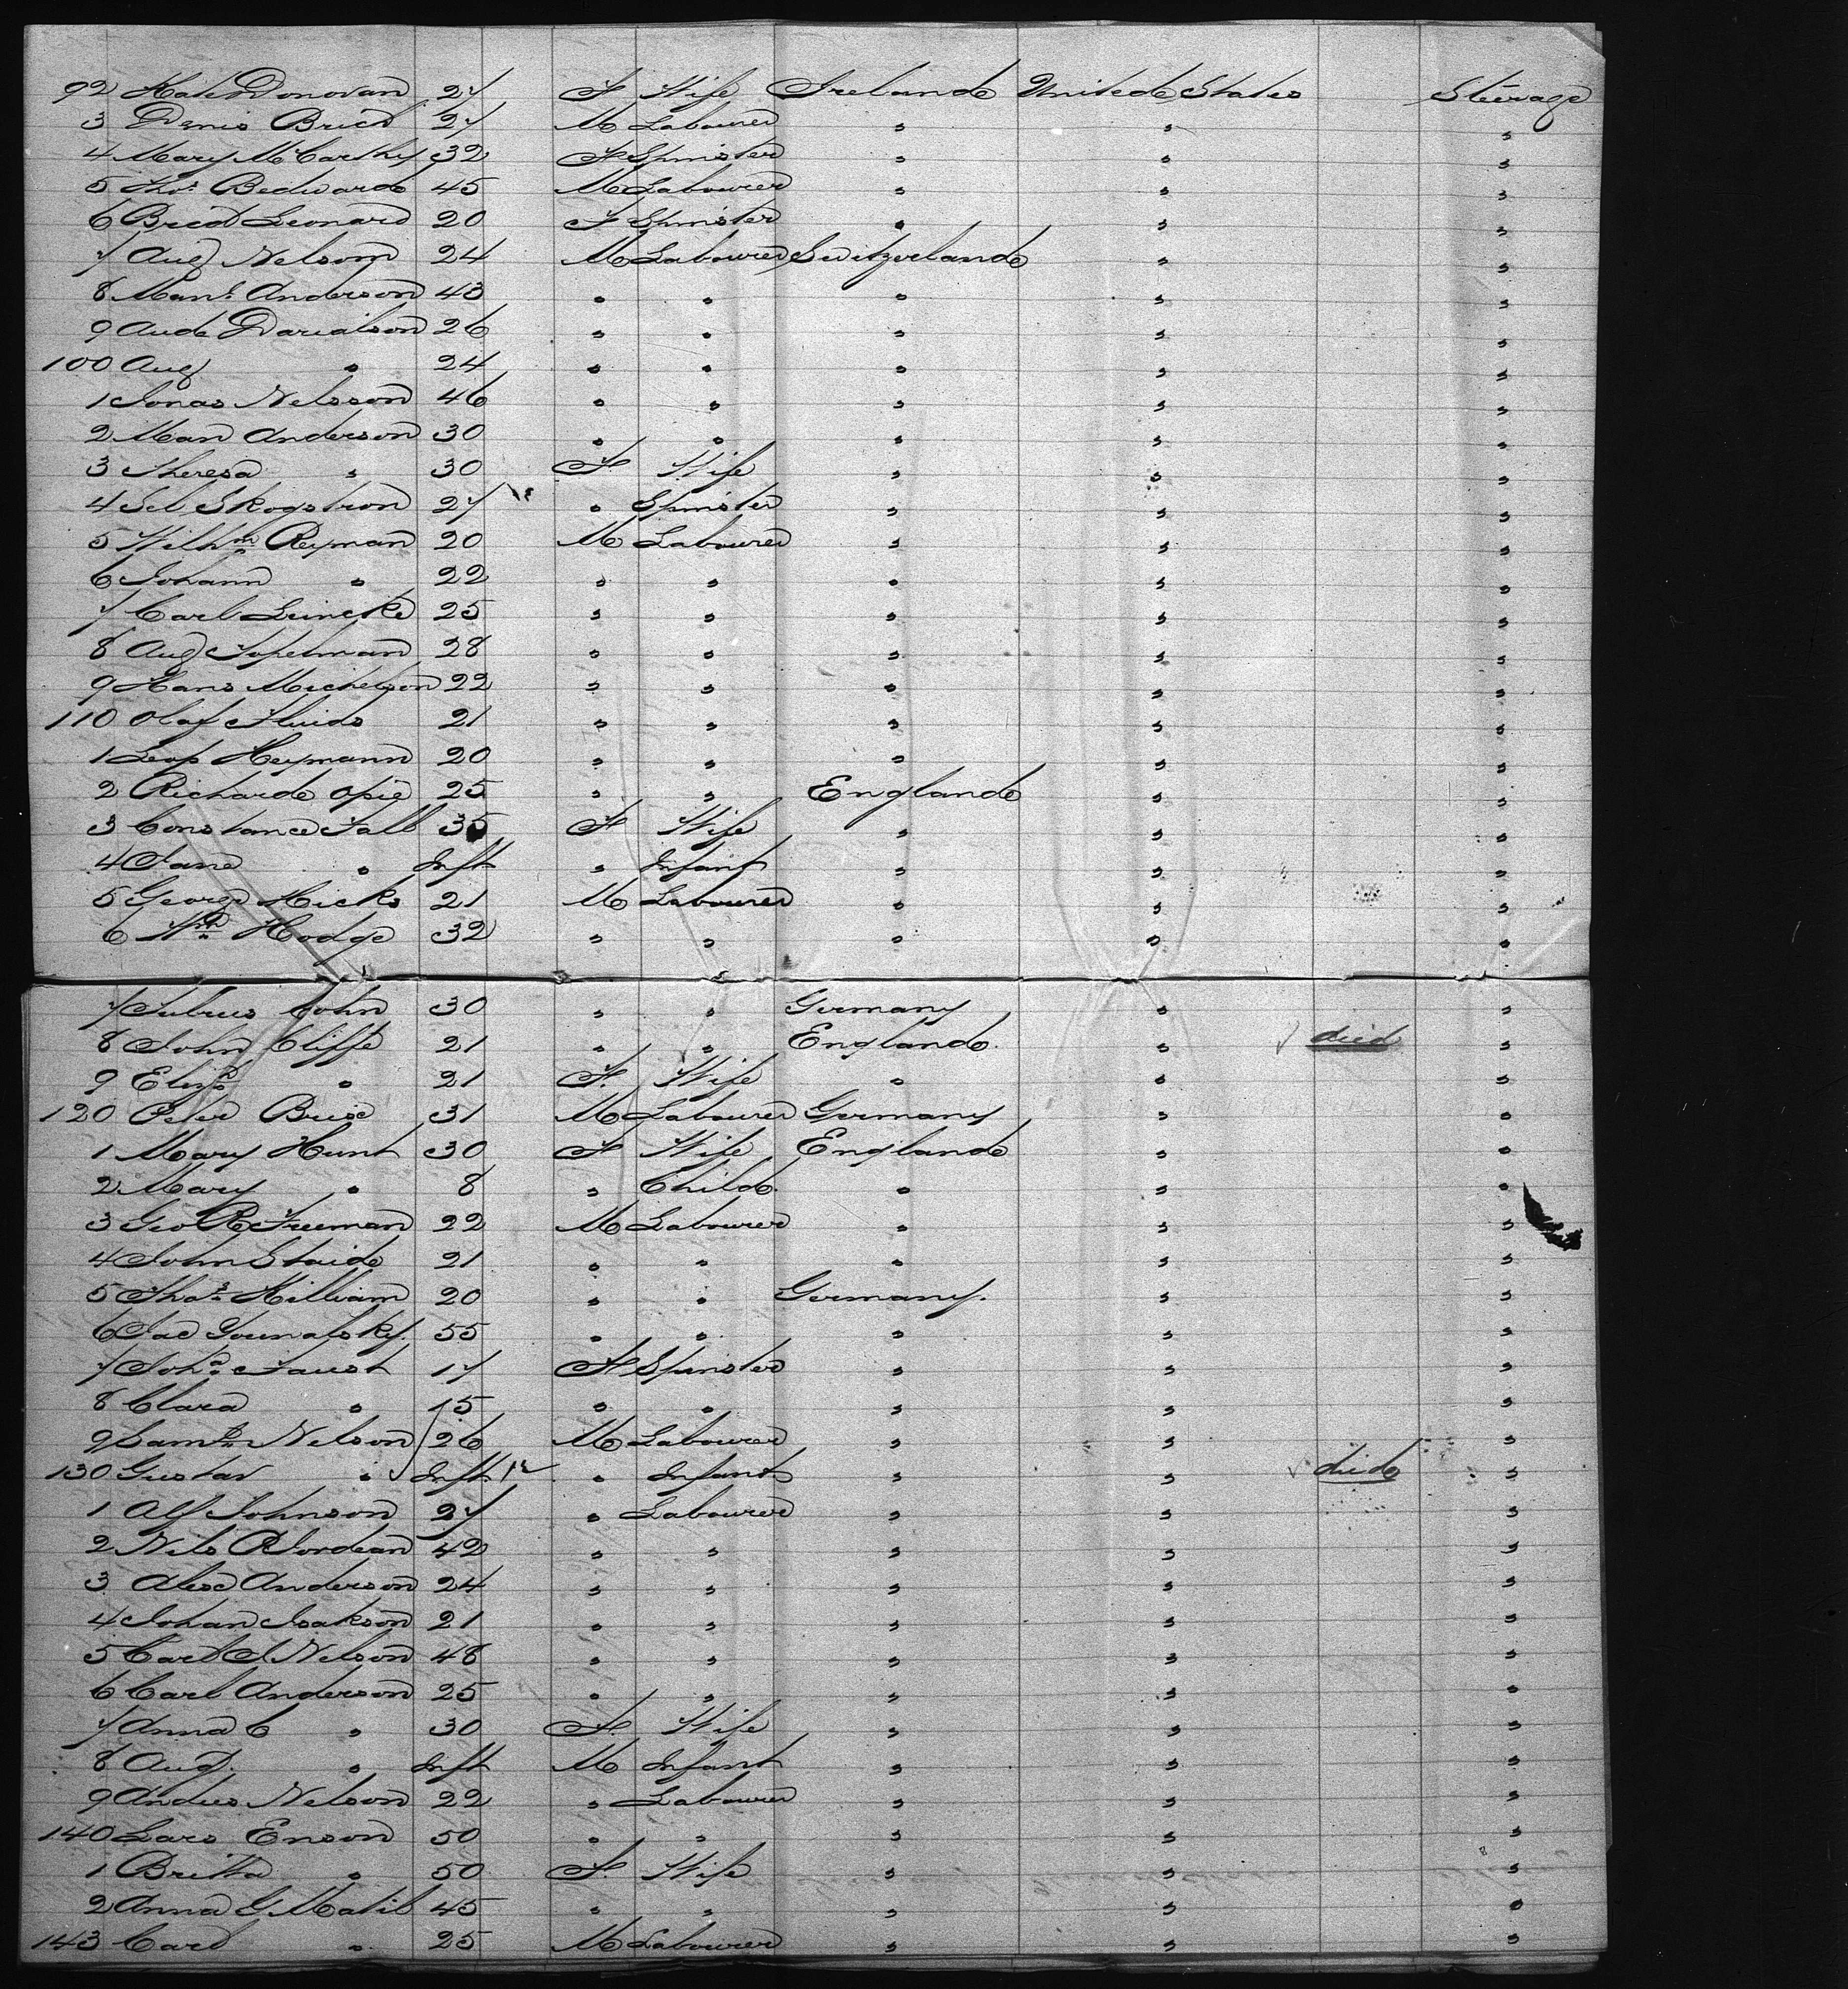 92 Kate Donovan 27 F Wife Ireland United States Steerage
3 Denis Bried 27 M Labourer " " "
4 Mary McCarthy 32 F Spinster " " "
5 Thos Bedwards 45 M Labourer " " "
6 Bried Leonard 20 F Spinster " " "
7 Aug Nelson 24 M Labourer Switzerland " "
8 Mans Anderson 43 " " " " "
9 Aude Davidson 26 " " " " "
100 Aug " 24 " " " " "
1 Jonas Nelsson 46 " " " " "
2 Man Anderson 30 " " " " "
3 Theresa " 30 F Wife " " "
4 Sel Skogstron 27 " Spinster " " "
5 Wilhm Reyman 20 M Labourer " " "
6 Johann " 22 " " " " "
7 Carl Leincke 25 " " " " "
8 Aug Topelman 28 " " " " "
9 Hans Michelson 22 " " " " "
110 Olaf Fluids 21 " " " " "
1 Leop Heymann 20 " " " " "
2 Richard Opie 25 " " England " "
3 Constance Fall 35 F Wife " " "
4 Jane " Inft " Infant " " "
5 George Hicks 21 M Labourer " " "
6 Wm Hodge 32 " " " " "
7 Julius Cohn 30 " " Germany " "
8 John Cliffe 21 " " England " died "
9 Eliza " 21 F Wife " " "
120 Peter Brix 31 M Labourer Germany " "
1 Mary Hunt 30 F Wife England " "
2 Mary " 8 " Child " " "
3 Geo R Freeman 22 M Labourer " " "
4 John Staide 21 " " " " "
5 Thos Killiam 20 " " Germany " "
6 Jac 55 " " " " "
7 Joha Faust 17 F Spinster " " "
8 Clara " 15 " " " " "
9 Nelson 26 M Labourer " " "
130 Gustav " Inft " Infant " " died "
1 Alf Johnson 27 " Labourer " " "
2 Nils 42 " " " " "
3 Alex Anderson 24 " " " " "
4 Johan Isakson 21 " " " " "
5 Carl J Nelson 48 " " " " "
6 Carl Anderson 25 " " " " "
7 Anna C " 30 F Wife " " "
8 Aug. " Inft M Infant " " "
9 Andres Nelson 22 " Labourer " " "
140 Lars Enson 50 " " " " "
1 Britta " 50 F Wife " " "
2 Anna G Matil 45 " " " " "
143 Carl " 25 M Labourer " " "